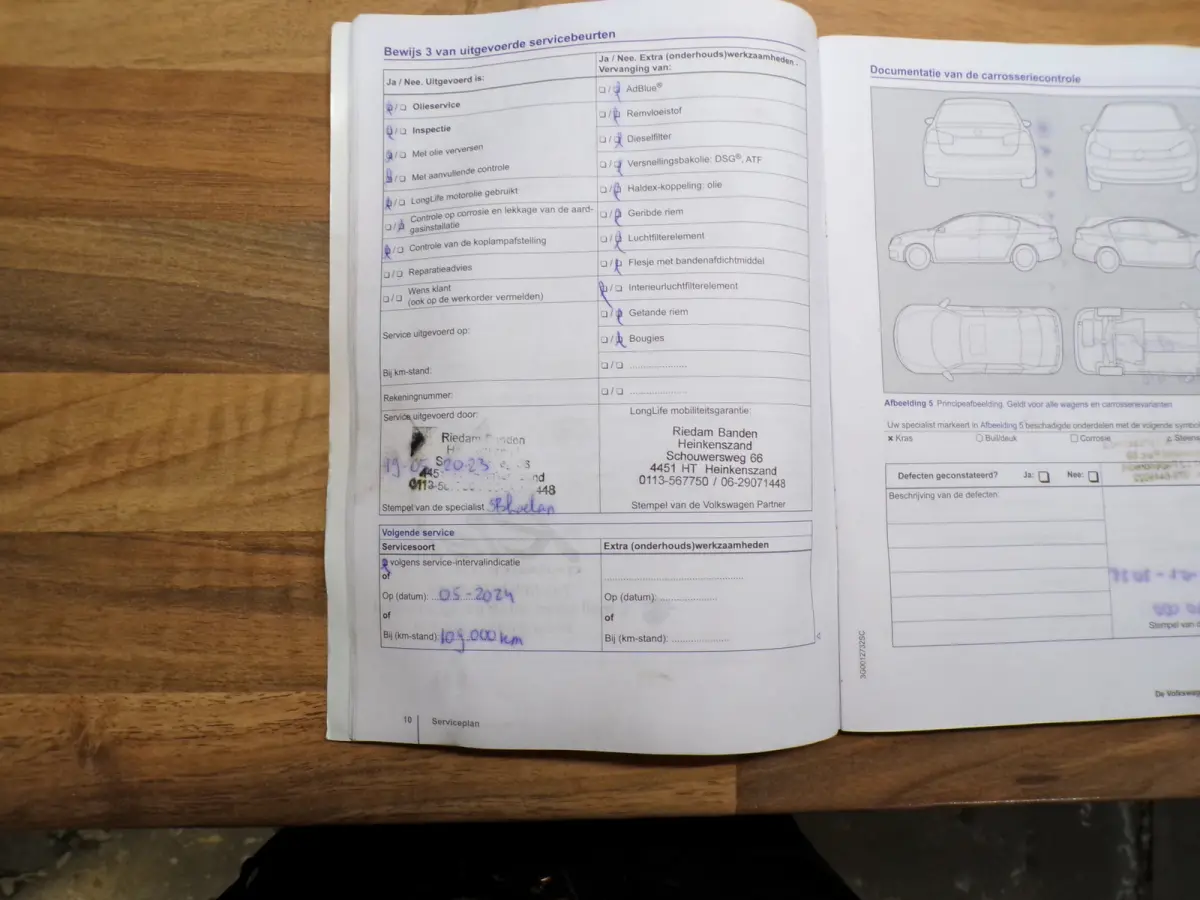 Bewijs 3 van uitgevoerde servicebeurten
Ja / Nee. Uitgevoerd is:
Olieservice
Inspectie
Met olie verversen
Met aanvullende controle
LongLife motorolie gebruikt
Controle op corrosie en lekkage van de aard-
gasinstallatie
Controle van de koplampafstelling
Reparatieadvies
Wens klant
(ook op de werkorder vermelden)
Service uitgevoerd op:
Bij km-stand:
Rekeningnummer:
Service uitgevoerd door:
Riedam Banden
19-05-2023
0113-56
448
Stempel van de specialist
Ja / Nee. Extra (onderhouds)werkzaamheden.
Vervanging van:
AdBlue®
Remvloeistof
Dieselfilter
Versnellingsbakolie: DSG®, ATF
Haldex-koppeling: olie
Geribde riem
Luchtfilterelement
Flesje met bandenafdichtmiddel
Interieurluchtfilterelement
Getande riem
Bougies
LongLife mobiliteitsgarantie:
Riedam Banden
Heinkenszand
Schouwersweg 66
4451 HT Heinkenszand
0113-567750 / 06-29071448
Stempel van de Volkswagen Partner
Volgende service
Servicesoort
volgens service-intervalindicatie
of
Op (datum): 05-2024
of
Bij (km-stand): 109.000 km
Extra (onderhouds)werkzaamheden
Op (datum):
of
Bij (km-stand):
10 Serviceplan
Documentatie van de carrosseriecontrole
Afbeelding 5 Principeafbeelding. Geldt voor alle wagens en carrosserievarianten
Uw specialist markeert in Afbeelding 5 beschadigde onderdelen met de volgende
x Kras Buil/deuk Corrosie
Defecten geconstateerd? Ja: Nee:
Beschrijving van de defecten:
Stempel van
3G0012732SC
De Volkswagen